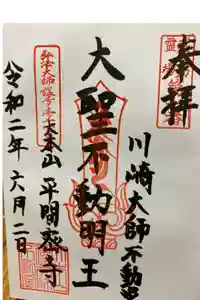 奉拝
川崎大師不動堂
大聖不動明王
弘法大師
大本山平間寺
令和二年六月二日